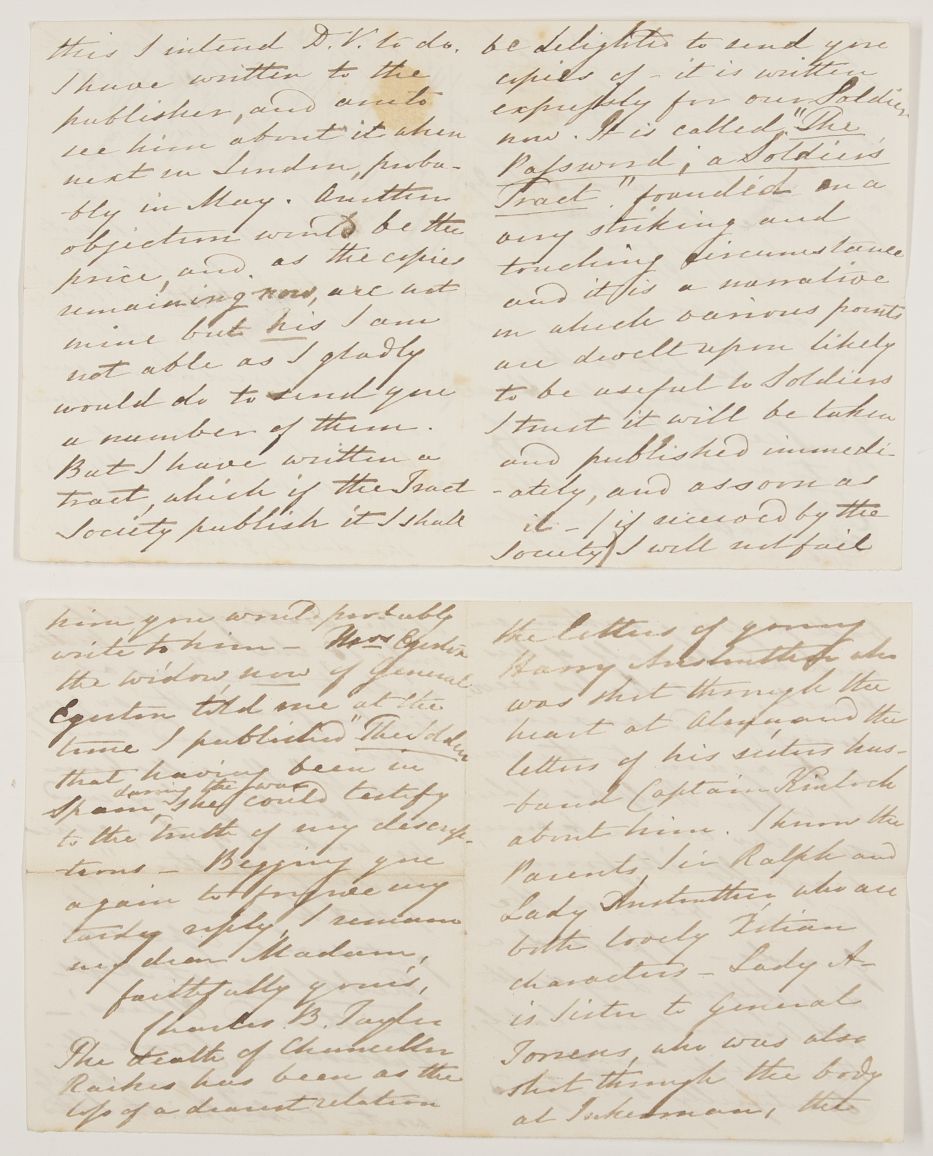 this I intend D.V. to do.
I have written to the
publisher, and am to
see him about it when
next in London, proba-
bly in May. Another
objection would be the
price, and as the copies
remaining now, are not
mine but his I am
not able as I gladly
would do to send you
a number of them.
But I have written a
tract, which if the Tract
Society publish it I shall
be delighted to send you
copies of - it is written
expressly for our Soldiers
now. It is called "The
Password; a Soldier's
Tract". founded on a
very striking and
touching circumstance
and it is a narrative
in which various points
are dwelt upon likely
to be useful to Soldiers
I trust it will be taken
and published immedi-
-ately, and as soon as
it - (if received by the
Society) I will not fail
him you would probably
write to him - Mrs Egerton
the widow now of General
Egerton told me at the
time I published "The
that having been in
Spain, during the war she could testify
to the truth of my descrip-
tions - Begging you
again to forgive my
tardy reply, I remain
my dear Madam,
faithfully yours,
Charles B. Tayler
The death of Chancellor
Raikes has been as the
loss of a dearest relation
the letters of young
Harry Anstruther who
was shot through the
heart at Alma, and the
letters of his sisters hus-
band Captain Kinloch
about him. I know the
Parents, Sir Ralph and
Lady Anstruther, who are
both lovely Xtian
characters - Lady A-
is Sister to General
Torrens, who was also
shot through the body
at Inkerman, the